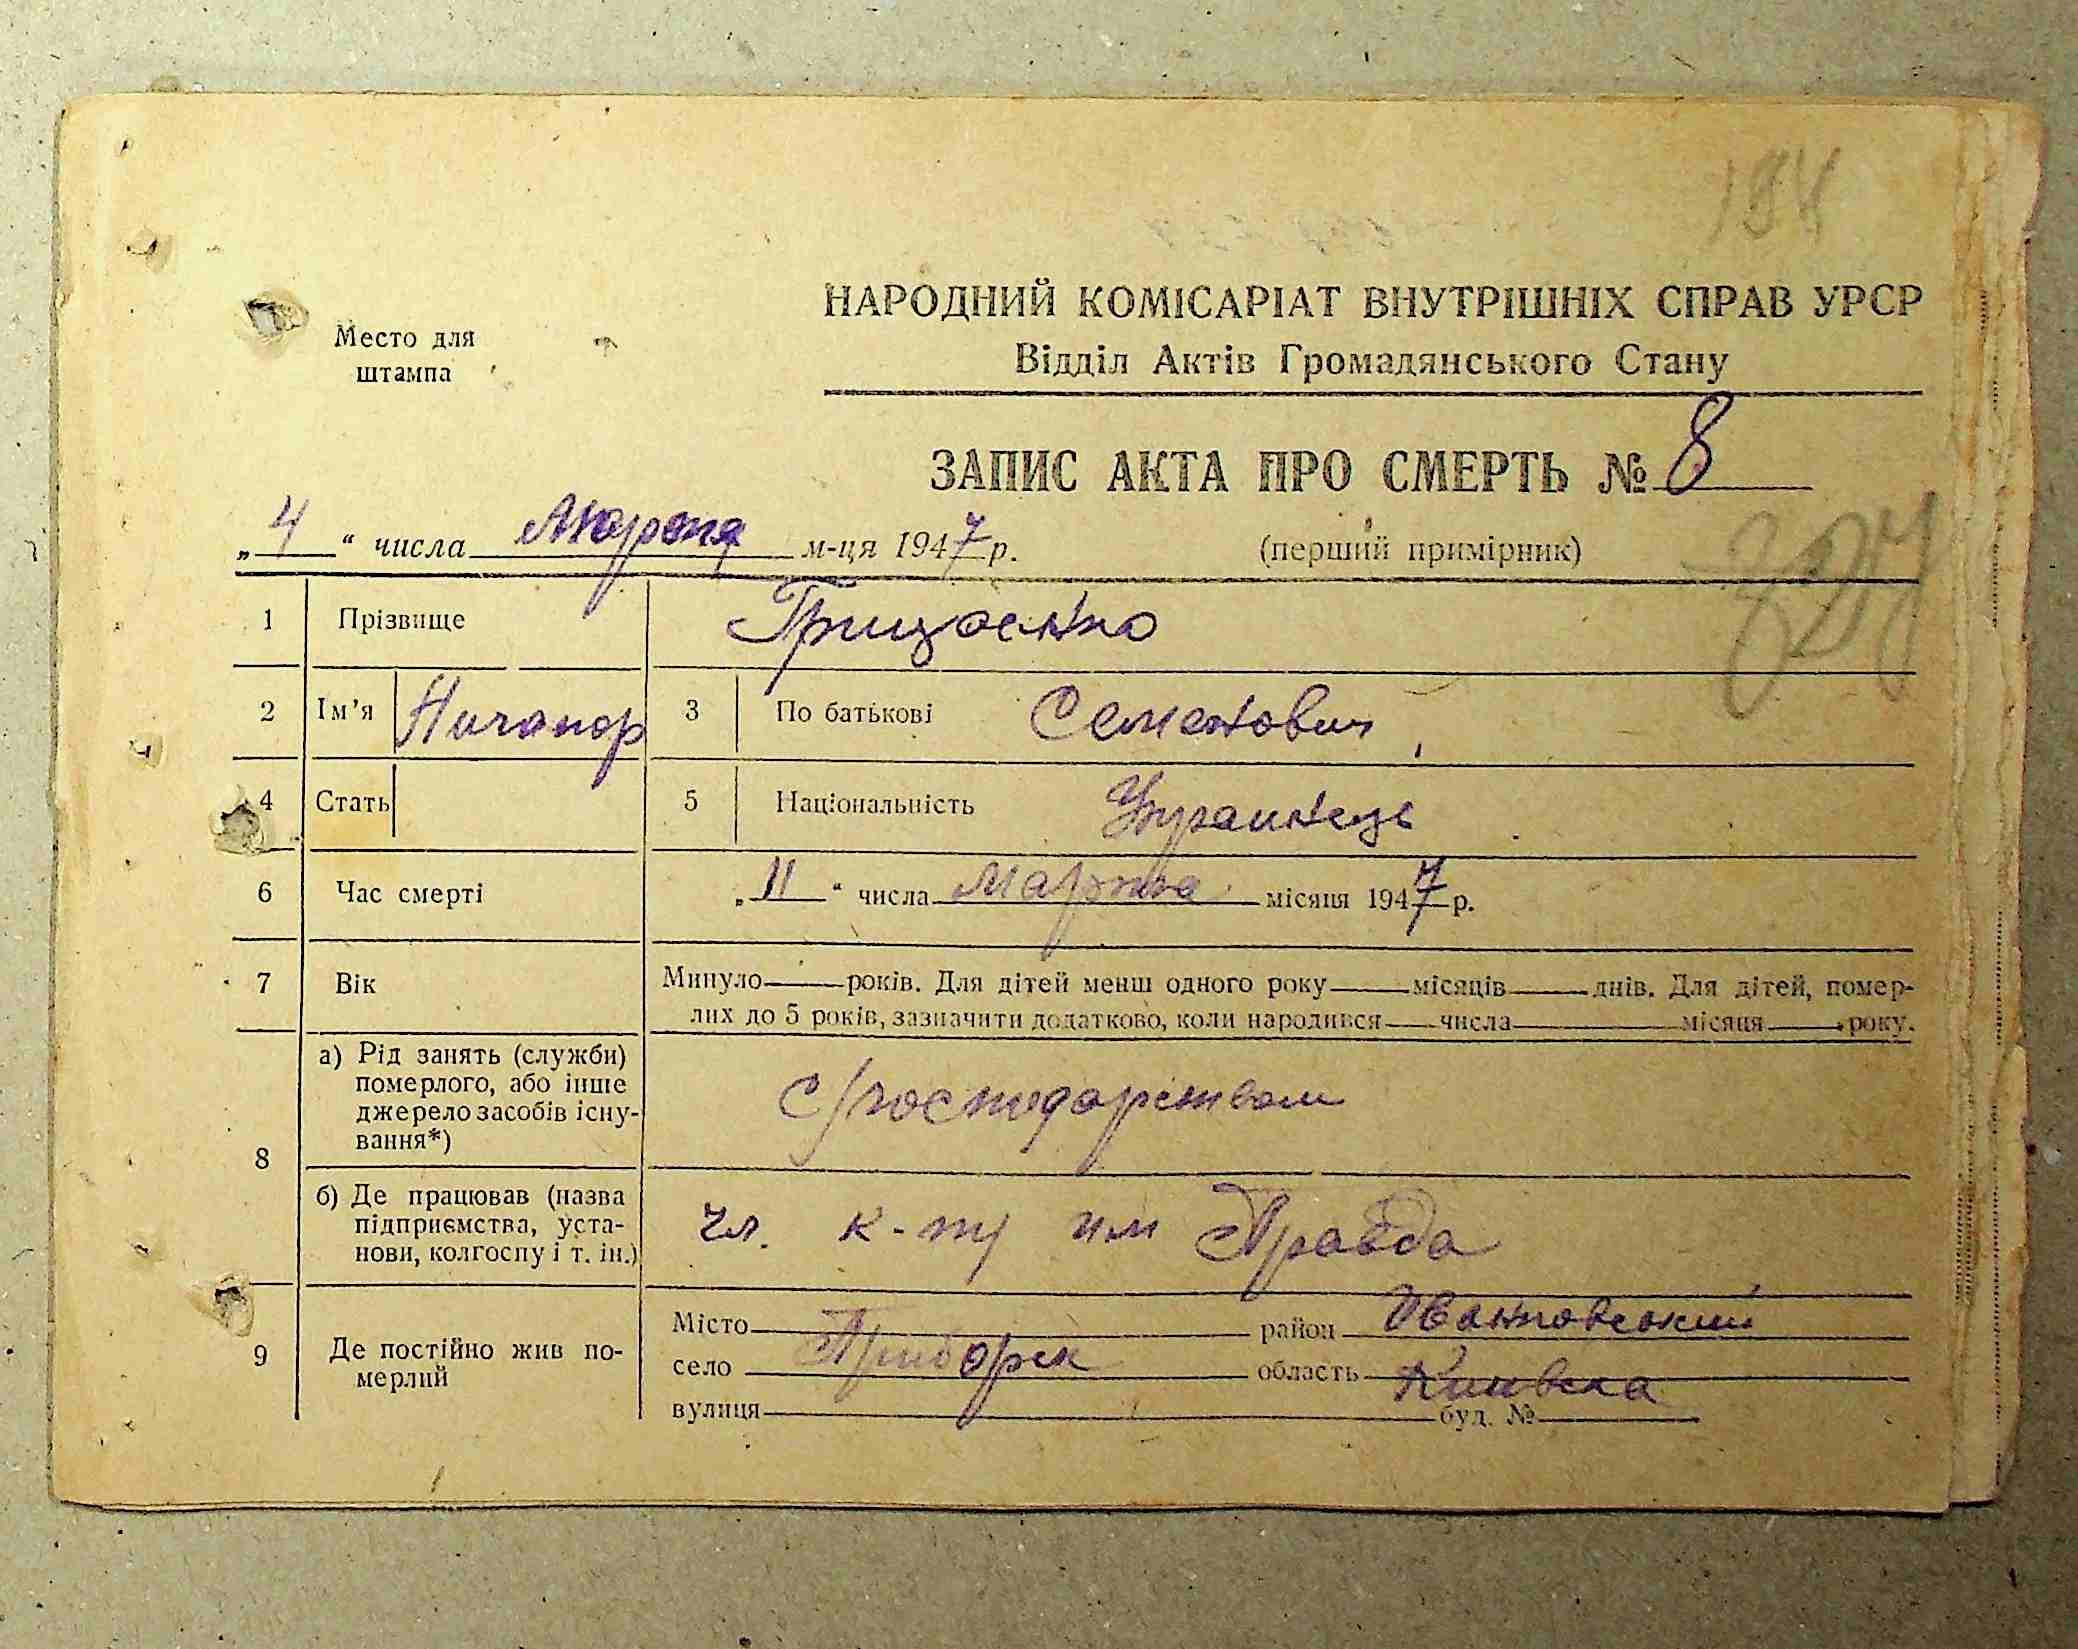 184
НАРОДНИЙ КОМІСАРІАТ ВНУТРІШНІХ СПРАВ УРСР
Відділ Актів Громадянського Стану
Место для
штампа
ЗАПИС АКТА ПРО СМЕРТЬ № 8
„4“ числа Марта м-ця 1947 р. (перший примірник)
1 Прізвище Грицаенко
2 Ім'я Ничапор 3 По батькові Семенович
4 Стать 5 Національність Украинець
6 Час смерті „11“ числа Марта місяця 1947 р.
7 Вік Минуло — років. Для дітей менш одного року — місяців — днів. Для дітей, помер-
лих до 5 років, зазначити додатково, коли народився — числа — місяця — року.
8 а) Рід занять (служби)
померлого, або інше
джерело засобів існу-
вання*)
с/господарством
б) Де працював (назва
підприємства, уста-
нови, колгоспу і т. ін.)
чл. к-ту им Правда
9 Де постійно жив по-
мерлий
Місто район Иванковський
село Приборск область Киівска
вулиця буд. №